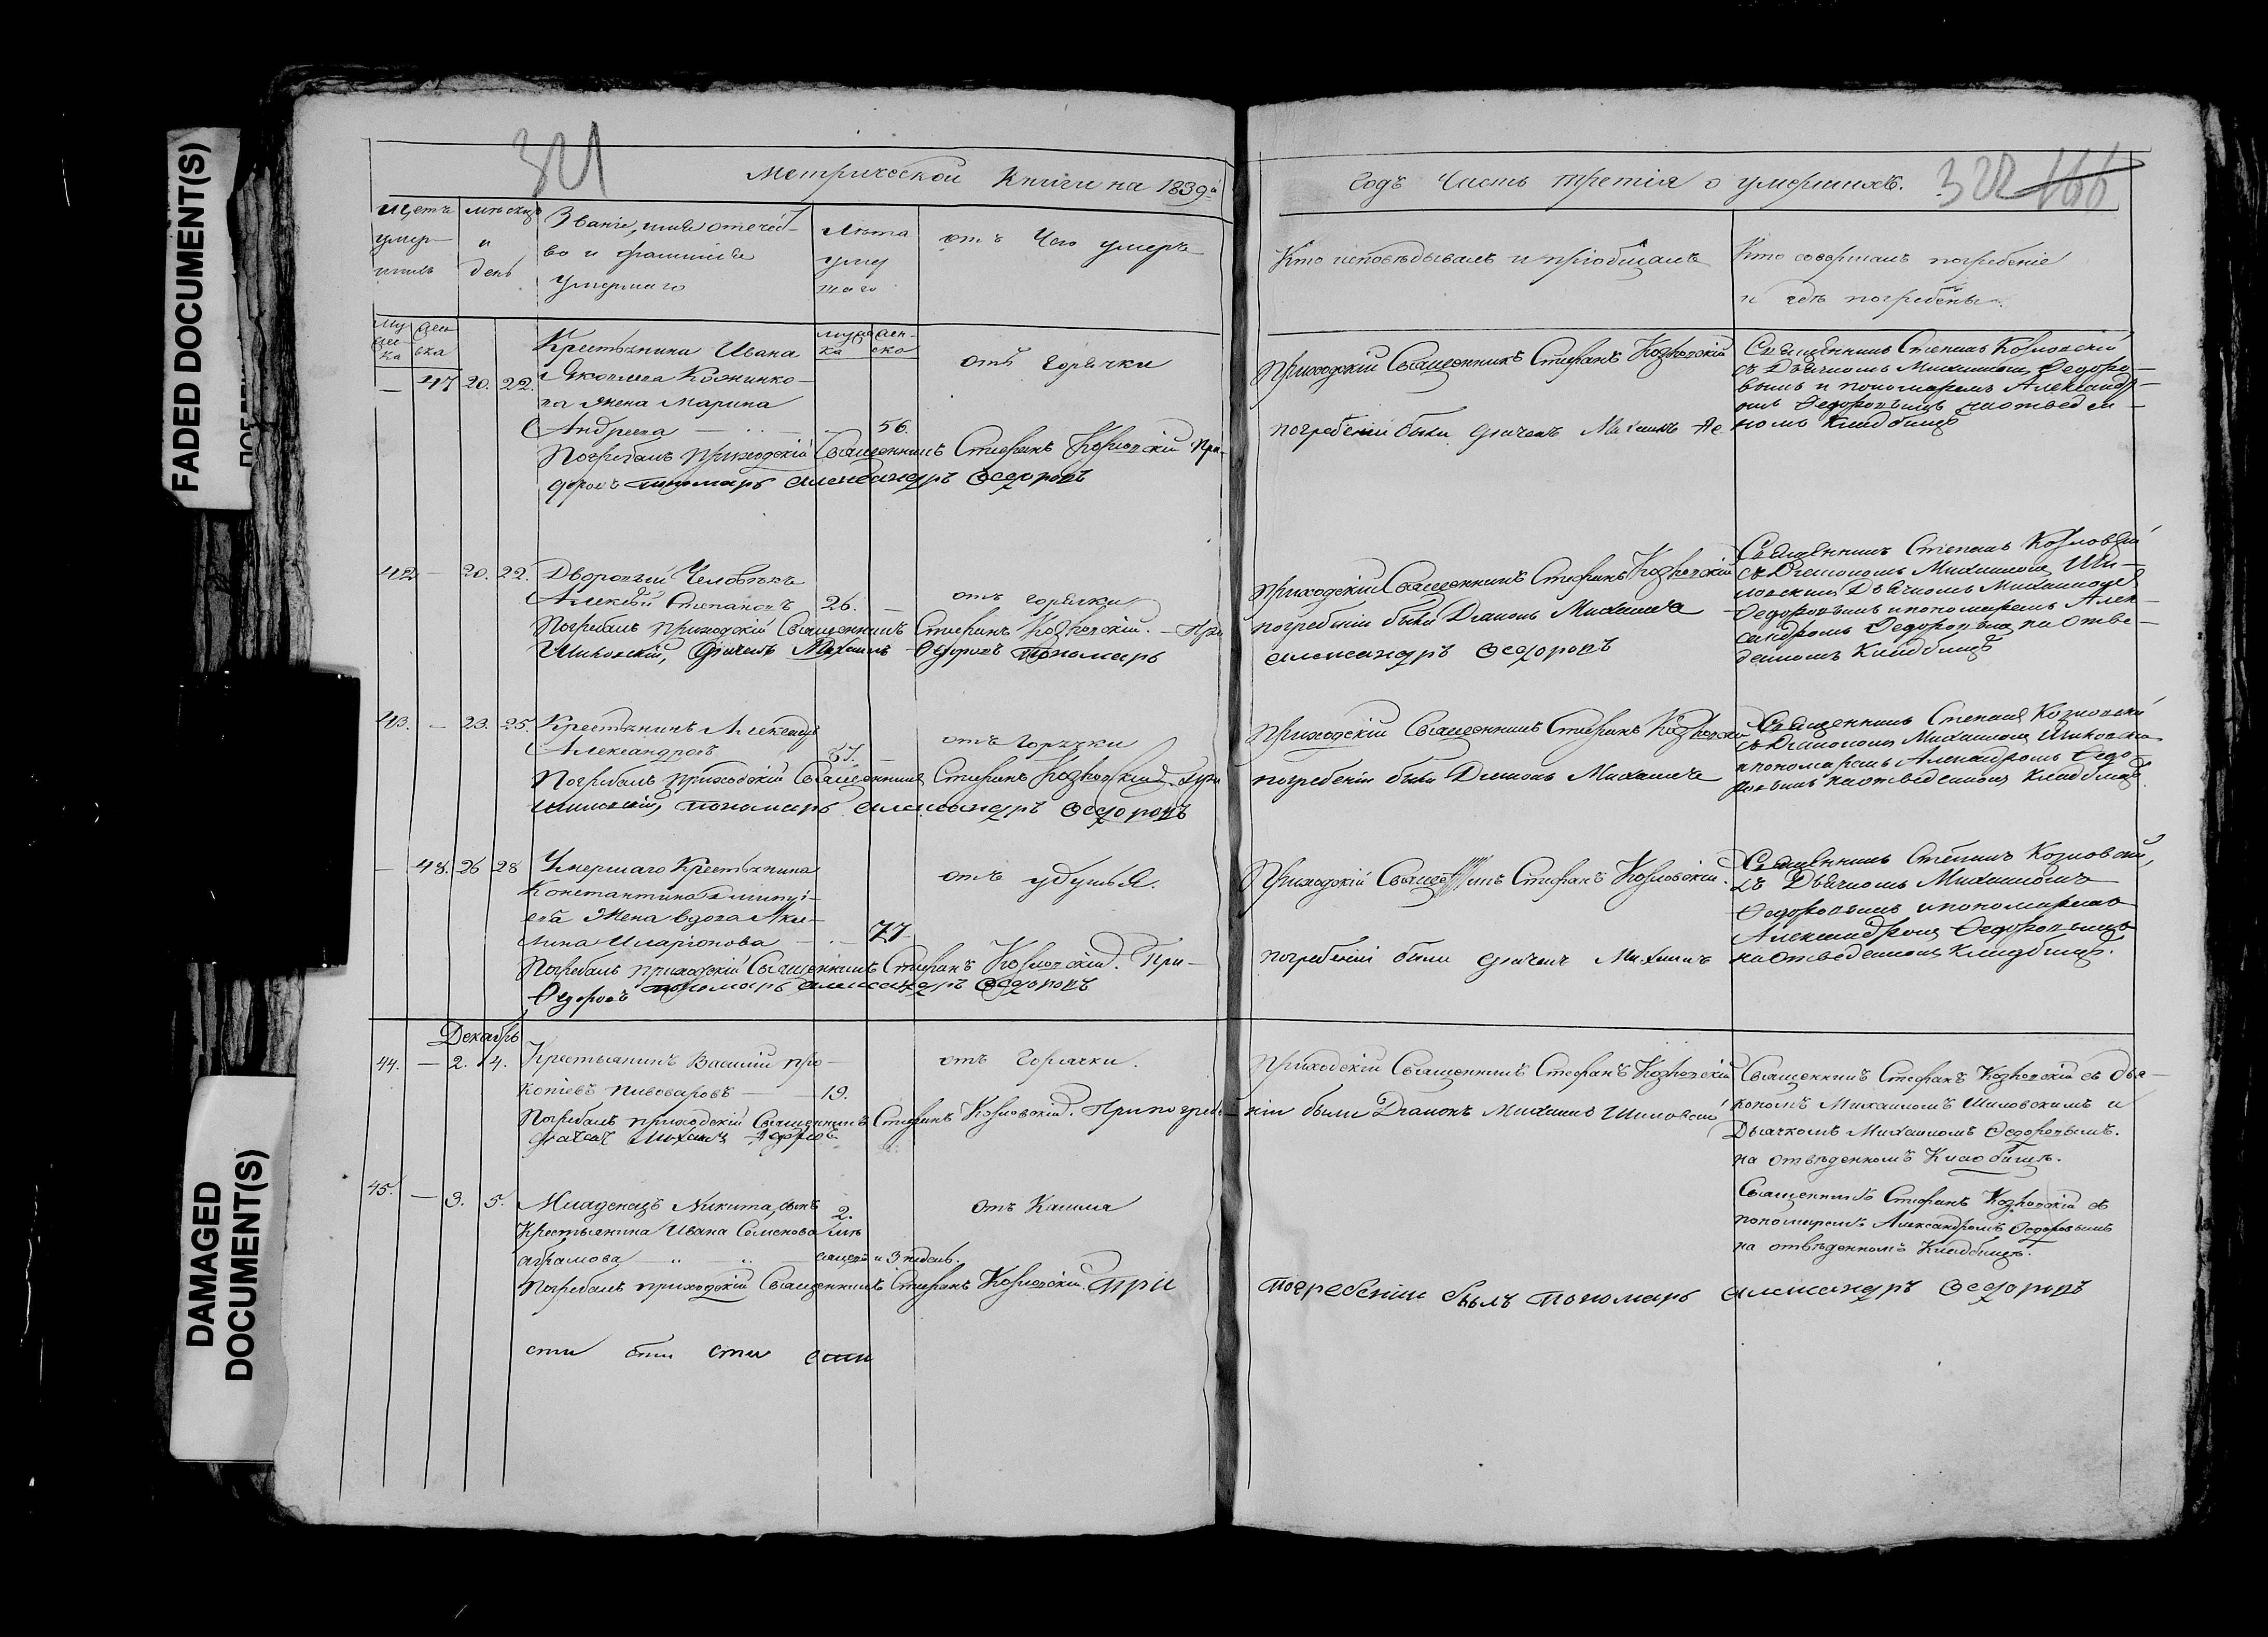 FADED DOCUMENT(S)
DAMAGED
DOCUMENT(S)
321
Метрической Книги на 1839й
щетъ
умер-
шихъ
мѣсяцъ
и
день
Званіе, имя отечест-
во и фамилія
умершаго
Лѣта
умер
шаго
отъ чего умеръ
Му
жес-
ка
жен
ска
муж
ка
жен-
ско
— 47 20. 22.
Крестьянина Ивана
Яковлева
ва жена Марина
Андреева 56.
отъ горячки
Погребалъ приходскій Священникъ Стефанъ Козловскій При-
доровъ пономарь Александръ Ѳедоровъ
42 — 20. 22.
Дворовый Человѣкъ
Алексѣй Степановъ 26. —
отъ горячки
Погребалъ приходскій Священникъ Стефанъ Козловскій. — При
Шиловскій, дьячекъ Михаилъ Ѳедоровъ пономарь
43. — 23. 25.
Крестьянинъ Александръ
Александровъ 37. —
отъ горячки
Погребалъ приходскій Священникъ Стефанъ Козловскій. При
Шиловскій, пономарь Александръ Ѳедоровъ
— 48. 26 28
Умершаго Крестьянина
Константина
ева жена вдова Аку-
лина Иларіонова 77
отъ удушья.
Погребалъ приходскій Священникъ Стефанъ Козловскій. При-
Ѳедоровъ пономарь Александръ Ѳедоровъ
Декабрь
44. — 2. 4.
Крестьянинъ Василій про-
копіевъ пивоваровъ — 19.
отъ горячки.
Погребалъ приходскій Священникъ Стефанъ Козловскій. При погребе-
дьячекъ Михаилъ Ѳедоровъ
45. — 3. 5.
Младенецъ Никита, сынъ
Крестьянина Ивана Семенова
аврамова
2.
и 3 недѣль.
отъ Кашля
Погребалъ приходскій Священникъ Стефанъ Козловскій. При
сти сти сти сти
годъ Часть третія о умершихъ.
322 166
Кто исповѣдывалъ и пріобщалъ
Кто совершалъ погребеніе
и гдѣ погребены.
Приходскій Священникъ Стефанъ Козловскій
погребеніи были дьячекъ Михаилъ Ѳе-
Священникъ Стефанъ Козловскій
съ Дьячкомъ Михаиломъ Ѳедоро-
вымъ и пономаремъ Александр-
омъ Ѳедоровымъ на отведен-
номъ Кладбищѣ
Приходскій Священникъ Стефанъ Козловскій
погребеніи были Діаконъ Михаилъ
Александръ Ѳедоровъ
Священникъ Стефанъ Козловскій
съ Діакономъ Михаиломъ Ши-
ловскимъ Дьячкомъ Михаиломъ
Ѳедоровымъ и пономаремъ Алек-
сандромъ Ѳедоровымъ на отве-
денномъ Кладбищѣ
Приходскій Священникъ Стефанъ Козловскій
погребеніи были Діаконъ Михаилъ
Священникъ Стефанъ Козловскій
съ Діакономъ Михаиломъ Шиловскимъ
и пономаремъ Александромъ Ѳедо-
ровымъ на отведенномъ Кладбищѣ.
Приходскій Священникъ Стефанъ Козловскій.
погребеніи были дьячекъ Михаилъ
Священникъ Стефанъ Козловскій,
съ Дьячкомъ Михаиломъ
Ѳедоровымъ и пономаремъ
Александромъ Ѳедоровымъ
на отведенномъ Кладбищѣ.
приходскій Священникъ Стефанъ Козловскій
ніи были Діаконъ Михаилъ Шиловскій
Священникъ Стефанъ Козловскій съ діа-
кономъ Михаиломъ Шиловскимъ и
Дьячкомъ Михаиломъ Ѳедоровымъ.
на отведенномъ Кладбищѣ.
погребеніи былъ пономарь Александръ Ѳедоровъ
Священникъ Стефанъ Козловскій съ
пономаремъ Александромъ Ѳедоровымъ
на отведенномъ Кладбищѣ.